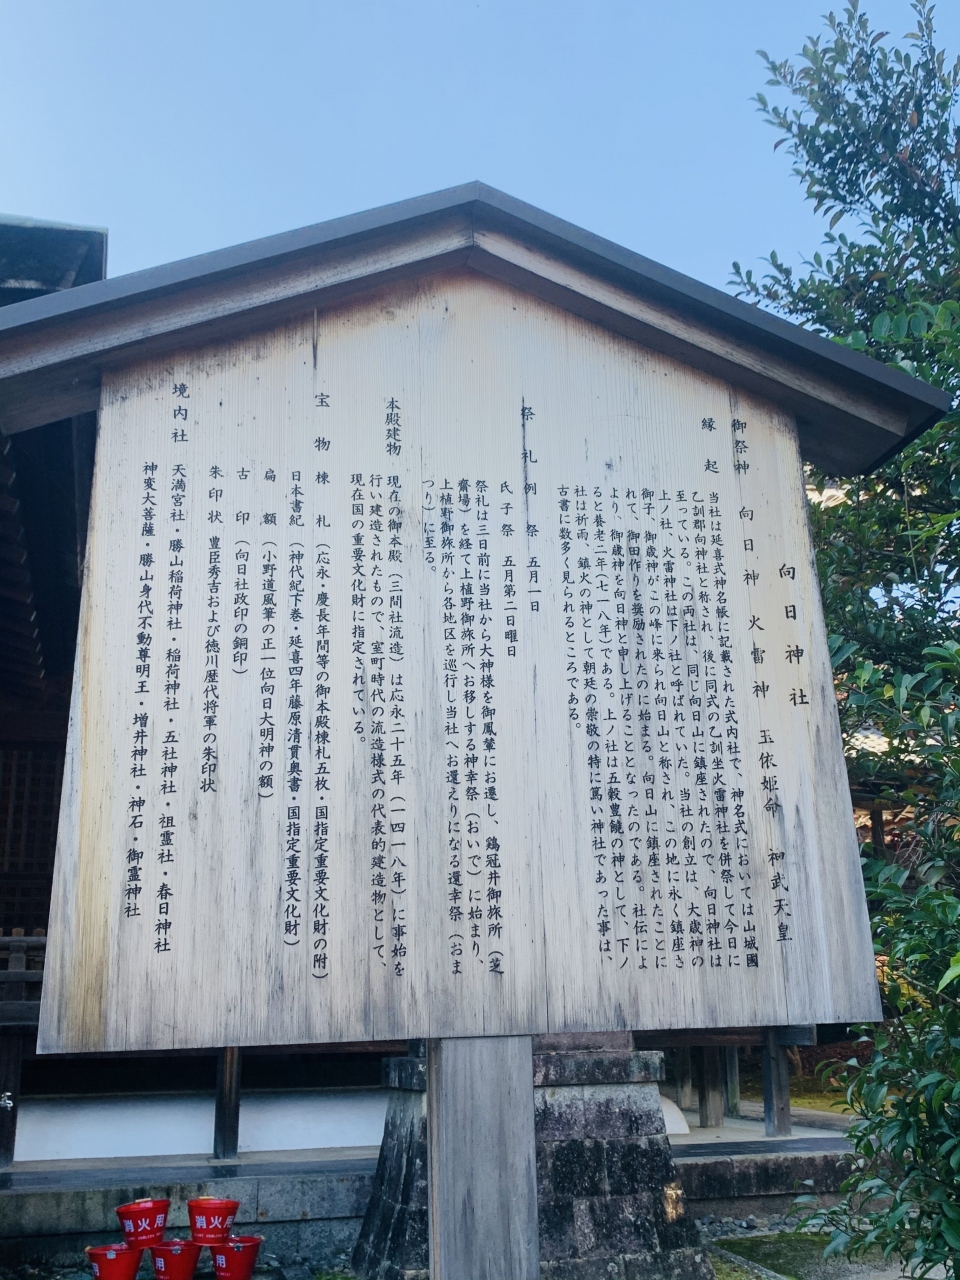 向日神社
御祭神 向日神 火雷神 玉依姫命 神武天皇
縁起
当社は延喜式神名帳に記載された式内社で、神名式においては山城國
乙訓郡向神社と称され、後に同式の乙訓坐火雷神社を併祭して今日に
至っている。この両社は、同じ向日山に鎮座されたので、向日神社は
上ノ社、火雷神社は下ノ社と呼ばれていた。当社の創立は、大歳神の
御子、御歳神がこの峰に来られ向日山と称され、この地に永く鎮座さ
れて、御田作りを奨励されたのに始まる。向日山に鎮座されたことに
より、御歳神を向日神と申し上げることとなったのである。社伝によ
ると養老二年(七一八年)である。上ノ社は五穀豊饒の神として、下ノ
社は祈雨、鎮火の神として朝廷の崇敬の特に篤い神社であった事は、
古書に数多く見られるところである。
祭礼 例祭 五月一日
氏子祭 五月第二日曜日
祭礼は三日前に当社から大神様を御鳳輦にお遷し、鶏冠井御旅所(芝
齋場)を経て上植野御旅所へお移しする神幸祭(おいで)に始まり、
上植野御旅所から各地区を巡行し当社へお還えりになる還幸祭(おま
つり)に至る。
本殿建物 現在の御本殿(三間社流造)は応永二十五年(一四一八年)に事始を
行い建造されたもので、室町時代の流造様式の代表的建造物として、
現在国の重要文化財に指定されている。
宝物 棟札(応永・慶長年間等の御本殿棟札五枚・国指定重要文化財の附)
日本書紀(神代紀下巻・延喜四年藤原清貫奥書・国指定重要文化財)
扁額(小野道風筆の正一位向日大明神の額)
古印(向日社政印の銅印)
朱印状 豊臣秀吉および徳川歴代将軍の朱印状
境内社 天満宮社・勝山稲荷神社・稲荷神社・五社神社・祖霊社・春日神社
神変大菩薩・勝山身代不動尊明王・増井神社・神石・御霊神社
消火用
消火用
用
用
用